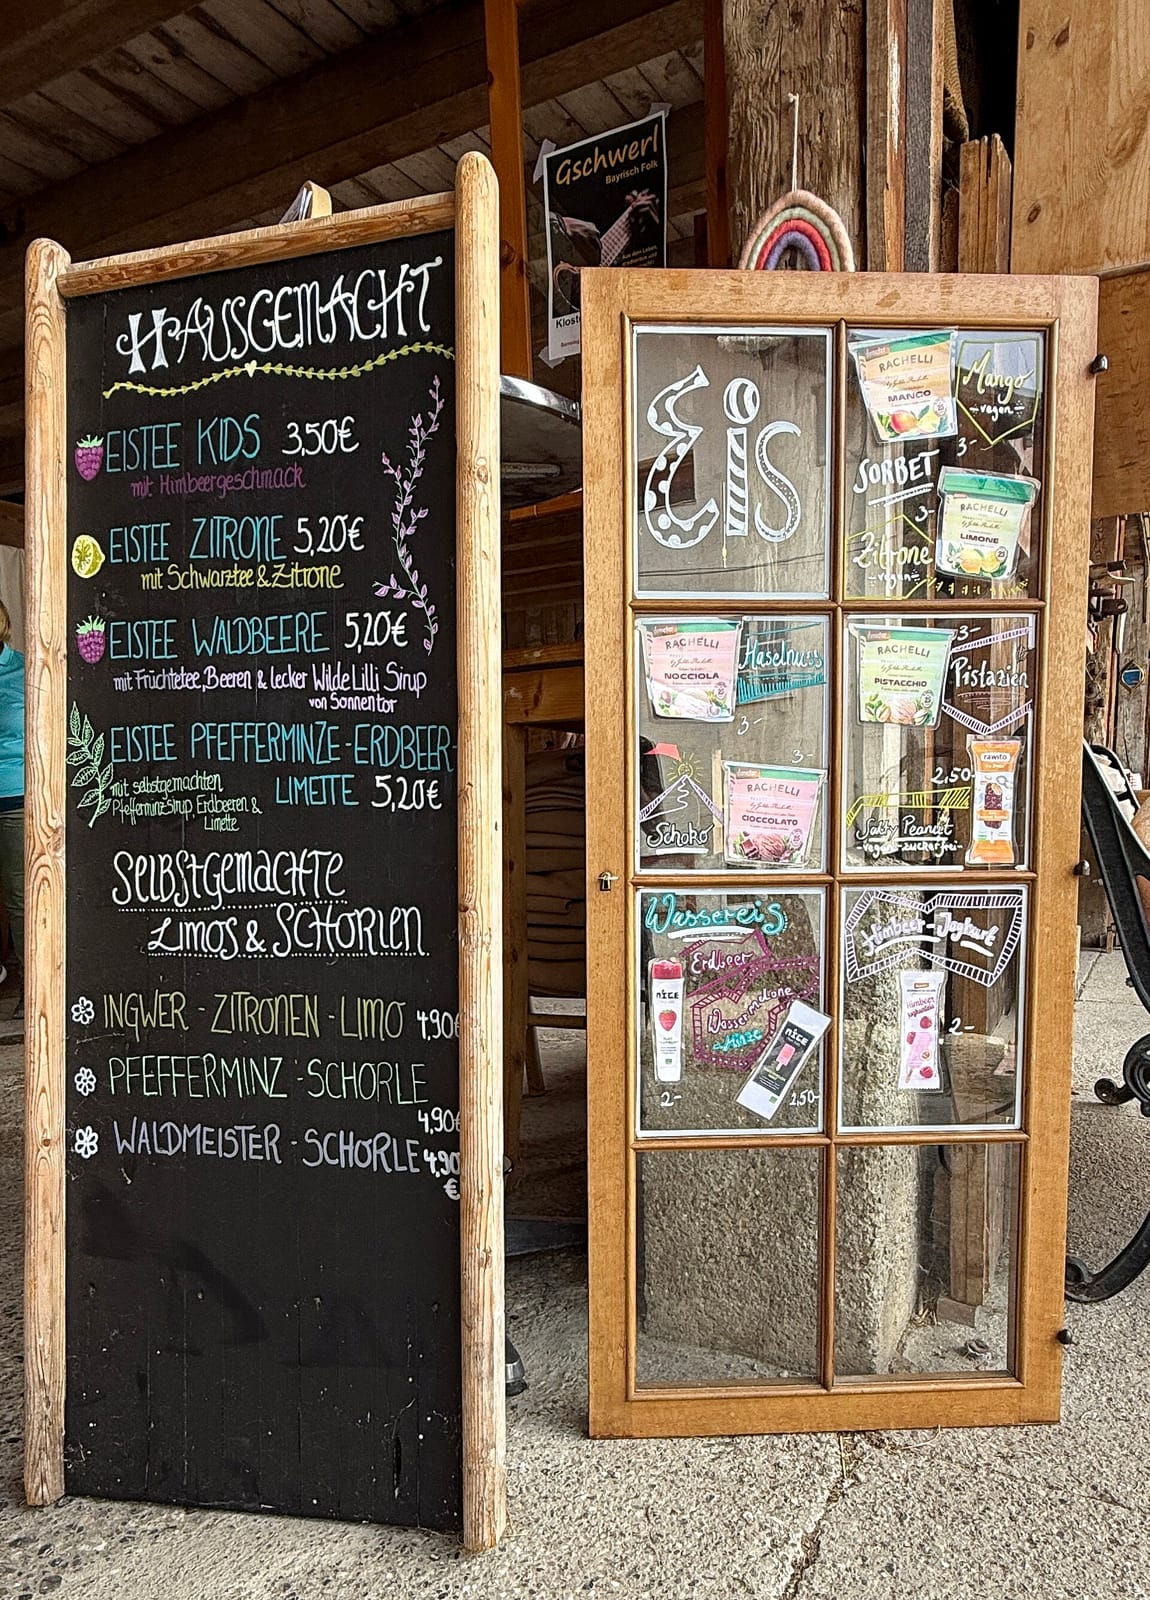 HAUSGEMACHT
EISTEE KIDS 3,50€
mit Himbeergeschmack
EISTEE ZITRONE 5,20€
mit Schwarztee & Zitrone
EISTEE WALDBEERE 5,20€
mit Früchtetee, Beeren & lecker Wilde Lilli Sirup
von Sonnentor
EISTEE PFEFFERMINZE-ERDBEER-
LIMETTE 5,20€
mit selbstgemachten
Pfefferminzsirup, Erdbeeren &
Limette
SELBSTGEMACHTE
LIMOS & SCHORLEN
INGWER-ZITRONEN-LIMO 4,90€
PFEFFERMINZ-SCHORLE
4,90€
WALDMEISTER-SCHORLE 4,90
€
Gschwerl
Bayrisch Folk
Eis
RACHELLI
MANGO
Mango
-vegan-
3-
SORBET
3-
RACHELLI
LIMONE
Zitrone
-vegan-
RACHELLI
NOCCIOLA
Haselnuss
3-
RACHELLI
PISTACCHIO
3-
Pistazien
Schoko
3-
RACHELLI
CIOCCOLATO
2,50
rawito
Salty Peanut
-vegan-zuckerfrei-
Wassereis
Erdbeer
Wassermelone
Minze
NICE
2-
NICE
2,50-
Himbeer-Joghurt
Himbeer
2-